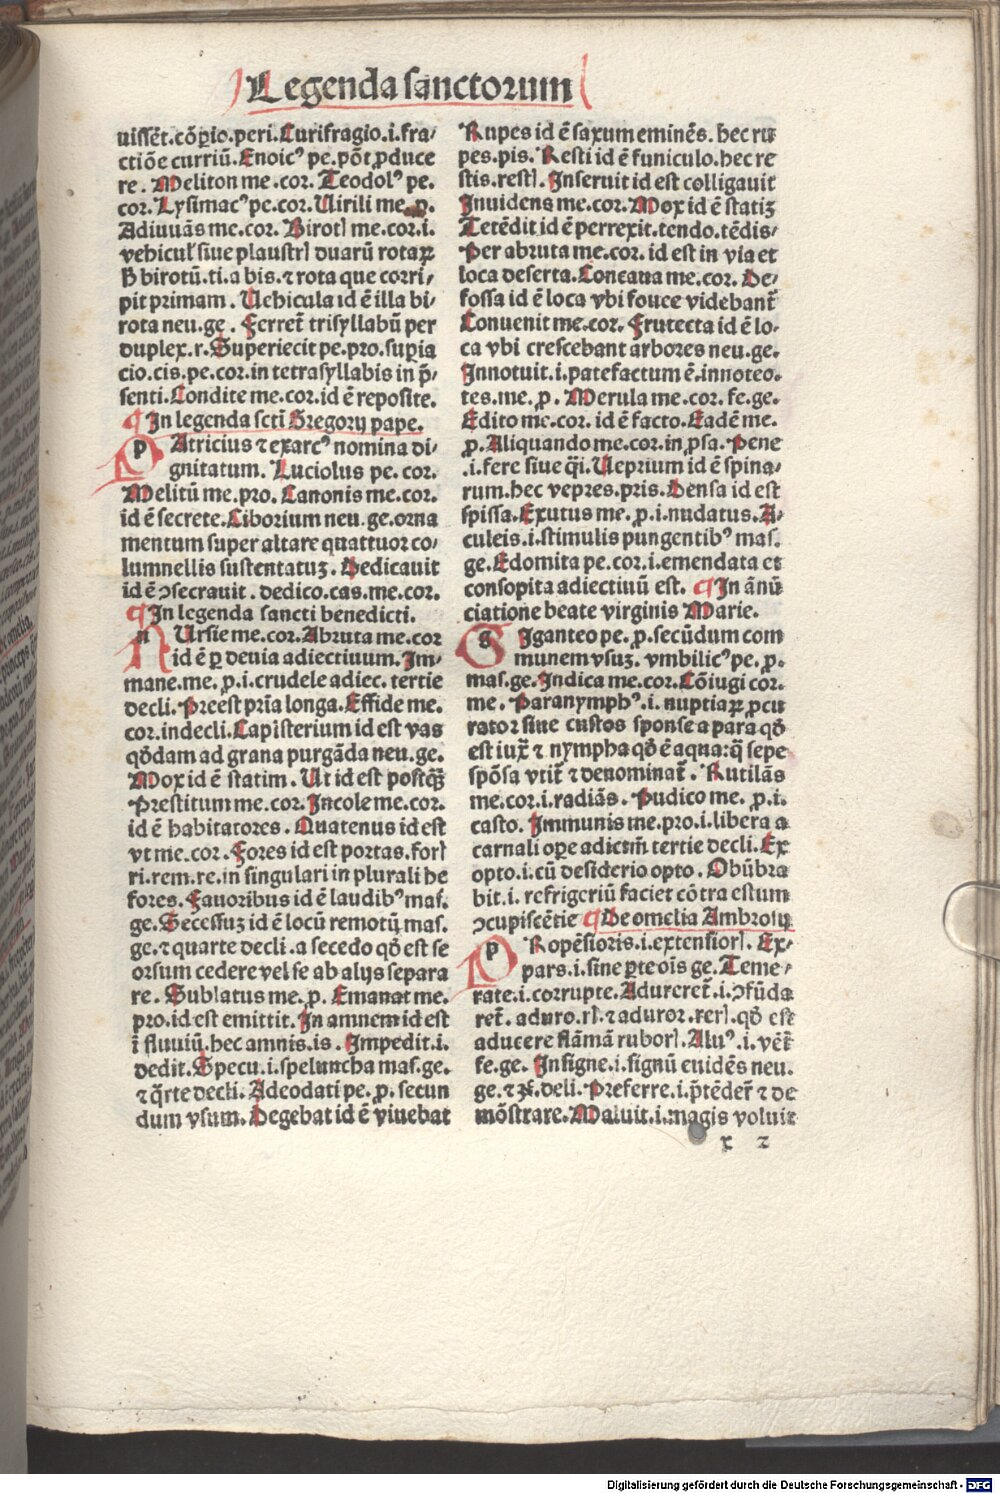 Legenda sanctorum
uissēt.cōꝑio.peri.Curifragio.i.fra/
ctiōe curriū.Enoicꝰ pe.pōt ꝓduce
re. Meliton me.cor. Teodolꝰ pe.
cor. Lysimacꝰ pe.cor. Uirili me.ꝓ.
Adiuuās me.cor. Birotꝭ me.cor.i.
vehicul siue plaustrꝭ duarū rotaꝝ
birotū.ti.a bis.⁊ rota que corri/
pit primam. Uehicula id ē illa bi/
rota neu.ge. Ferret trisyllabū per
duplex.r. Superiecit pe.pro.suꝑia
cio.cis.pe.cor.in tetrasyllabis in p̄/
senti. Condite me.cor.id ē reposite.
¶ In legenda scti Gregorij pape.
PAtricius ⁊ exarcꝰ nomina di/
gnitatum. Luciolus pe.cor.
Melitū me.pro. Canonis me.cor.
id ē secrete. Ciborium neu.ge.orna
mentum super altare quattuor co/
lumnellis sustentatuꝫ. Dedicauit
id ē ꝯsecrauit. dedico.cas.me.cor.
¶ In legenda sancti benedicti.
NUrsie me.cor. Abruta me.cor
id ē ꝑ deuia adiectiuum. Im/
mane.me.ꝓ.i.crudele adiec.tertie
decli. Preest pria longa. Effide me.
cor.indecli. Capisterium id est vas
qđdam ad grana purgāda neu.ge.
Mox id ē statim. Ut id est postꝙ̄
Prestitum me.cor. Incole me.cor.
id ē habitatores. Quatenus id est
vt me.cor. Fores id est portas.forꝭ
ri.rem.re.in singulari in plurali he
fores. Fauoribus id ē laudibꝰ mas.
ge. Secessuꝫ id ē locū remotū mas.
ge.⁊ quarte decli.a secedo qđ est se
orsum cedere vel se ab alijs separa
re. Sublatus me.ꝓ. Emanat me.
pro.id est emittit. In amnem id est
ī fluuiū.hec amnis.is. Impedit.i.
dedit. Specu.i.speluncha mas.ge.
⁊ q̄rte decli. Adeodati pe.ꝓ.secun
dum vsum. Degebat id ē viuebat
Rupes id ē saxum eminēs.hec ru
pes.pis. Resti id ē funiculo.hec re
stis.restꝭ. Inseruit id est colligauit
Inuidens me.cor. Mox id ē statiꝫ
Tetēdit id ē perrexit.tendo.tēdis/
Per abruta me.cor.id est in via et
loca deserta. Concaua me.cor. De/
fossa id ē loca vbi fouce videbant̄
Conuenit me.cor. Frutecta id ē lo/
ca vbi crescebant arbores neu.ge.
Innotuit.i.patefactum ē.innoteo.
tes.me.ꝓ. Merula me.cor.fe.ge.
Edito me.cor.id ē facto. Eadē me.
ꝓ. Aliquando me.cor.in ꝓsa. Pene
.i.fere siue q̄i. Ueprium id ē spina/
rum.hec vepres.pris. Densa id est
spissa. Exutus me.ꝓ.i.nudatus. A/
culeis.i.stimulis pungentibꝰ mas.
ge. Edomita pe.cor.i.emendata et
consopita adiectiuū est. ¶ In ānū
ciatione beate virginis Marie.
GIganteo pe.ꝓ.secūdum com
munem vsuꝫ. vmbilicꝰ pe.ꝓ.
mas.ge. Indica me.cor. Cōiugi cor.
me. Paranymphꝰ.i.nuptiaꝝ ꝓcu
rator siue custos sponse a para qđ
est iux̄ ⁊ nympha qđ ē aqua:q̄ sepe
spōsa vtit̄ ⁊ denominat̄. Rutilās
me.cor.i.radiās. Pudico me.ꝓ.i.
casto. Immunis me.pro.i.libera a
carnali oꝑe adictm̄ tertie decli. Ex
opto.i.cū desiderio opto. Obūbra
bit.i.refrigeriū faciet cōtra estum
ꝯcupiscētie ¶ De omelia Ambrosij
PRopēsioris.i.extensiorꝭ. Ex/
pars.i.sine ꝑte oīs ge. Teme/
rate.i.corrupte. Adureret̄.i.ꝯfūda
ret̄. aduro.rꝭ.⁊ aduror.rerꝭ.qđ est
aducere flāmā ruborꝭ. Aluꝰ.i.vēt̄
fe.ge. Insigne.i.signū euidēs neu.
ge.⁊ .deli. Preferre.i.p̄tēder̄ ⁊ de
mōstrare. Maluit.i.magis voluit
x 2
Digitalisierung gefördert durch die Deutsche Forschungsgemeinschaft - DFG